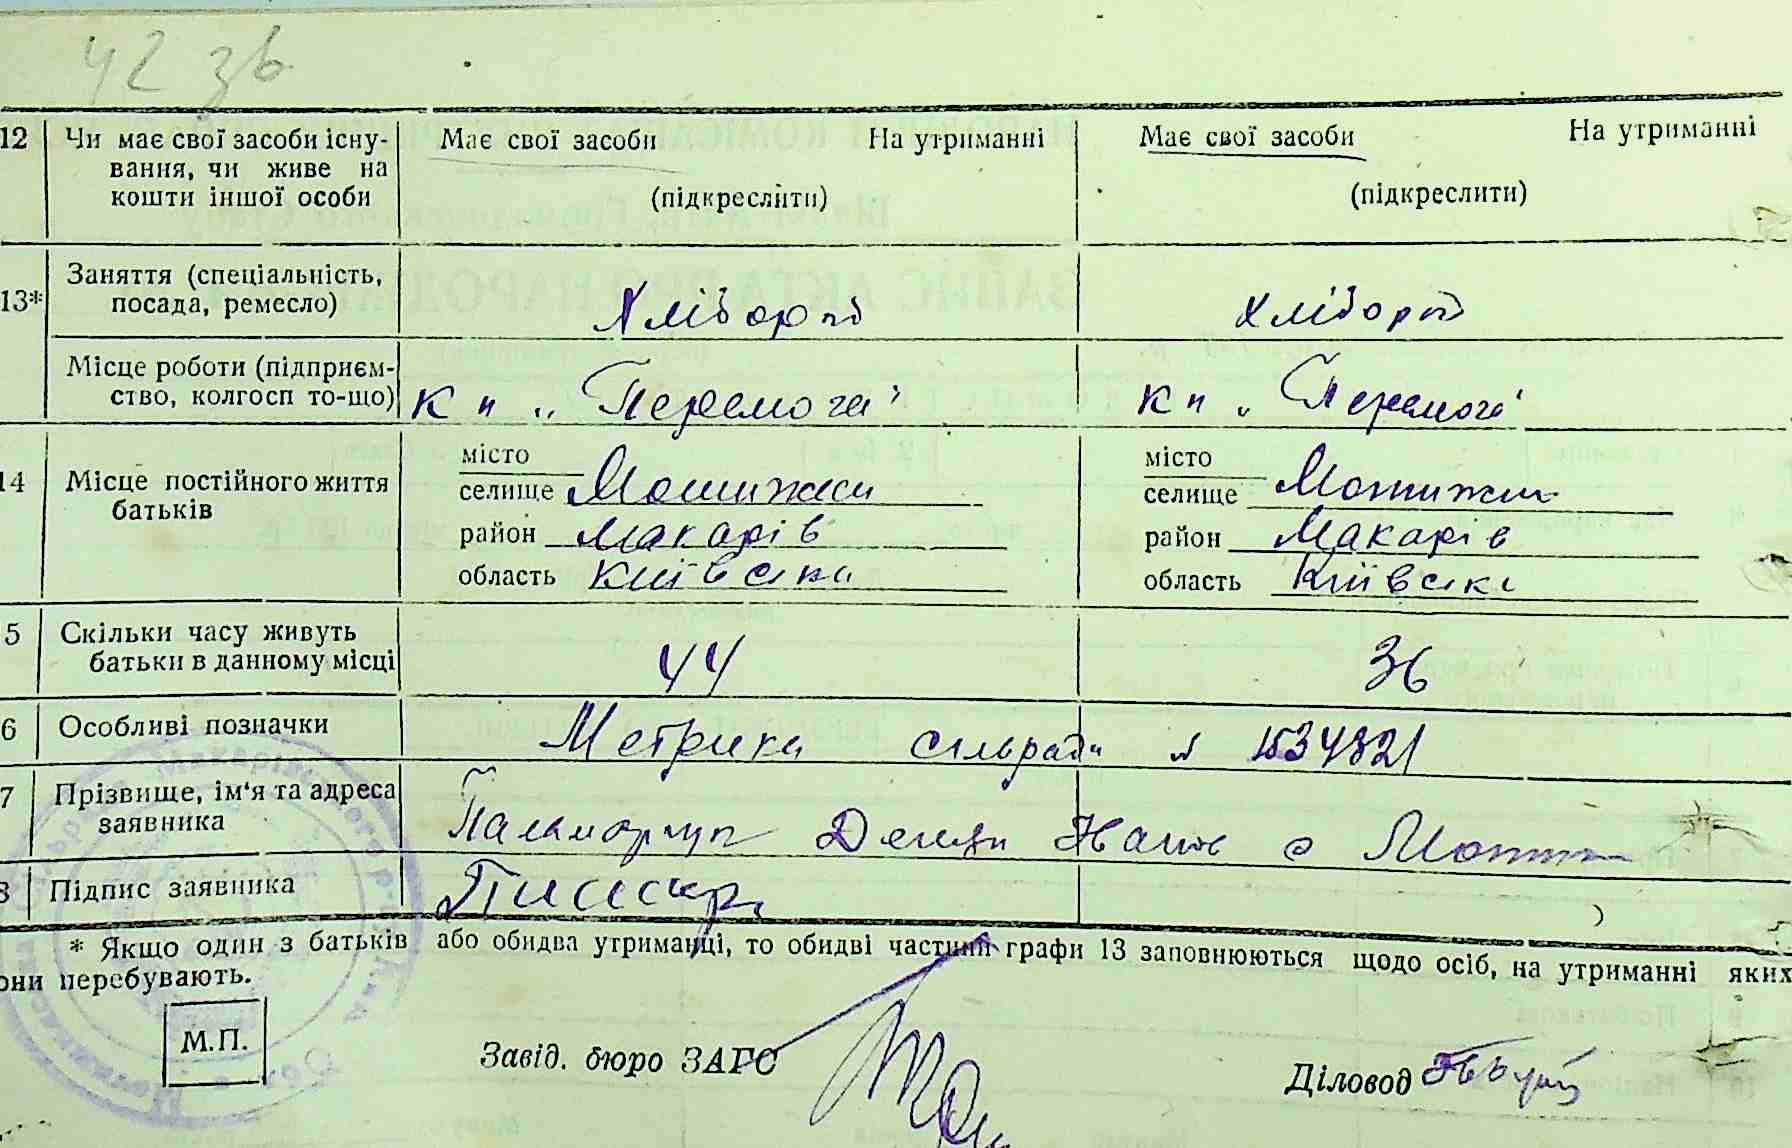 42 зв
12 Чи має свої засоби існу- Має свої засоби На утриманні Має свої засоби На утриманні
вання, чи живе на
кошти іншої особи (підкреслити) (підкреслити)
13* Заняття (спеціальність,
посада, ремесло) Хлібороб Хлібороб
Місце роботи (підприєм-
ство, колгосп то-що) К п „Перемога" К п „Перемога"
14 Місце постійного життя
батьків
місто місто
селище Мотижин селище Мотижин
район Макарів район Макарів
область Київська область Київська
5 Скільки часу живуть
батьки в данному місці 44 36
6 Особливі позначки Метрика сільради № 1534821
7 Прізвище, ім'я та адреса
заявника Паламарчук Іванов с
8 Підпис заявника
* Якщо один з батьків або обидва утриманці, то обидві частини графи 13 заповнюються щодо осіб, на утриманні яких
они перебувають.
М.П.
Завід. бюро ЗАГС Діловод